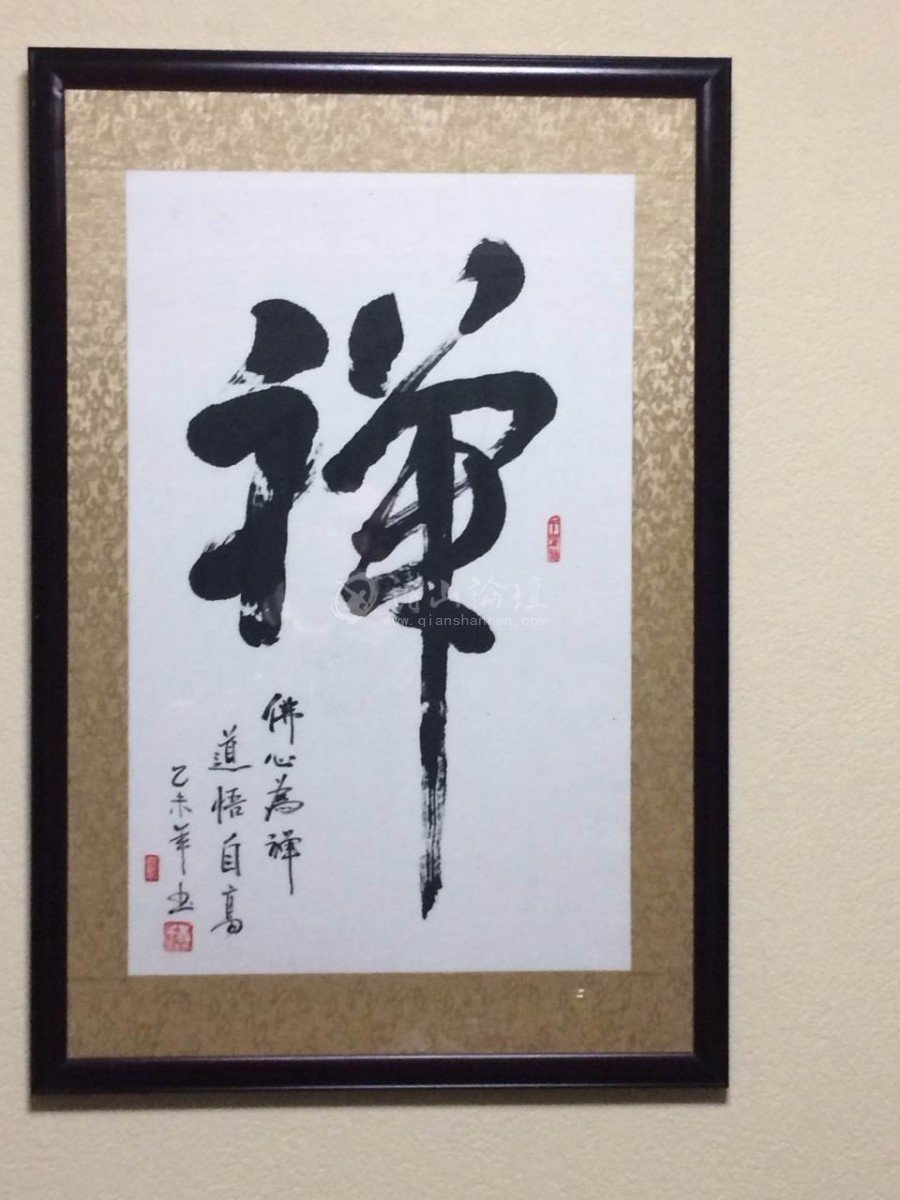 禅
佛心為禅
道悟自高
乙未年书
潜山论坛
www.qianshanren.com